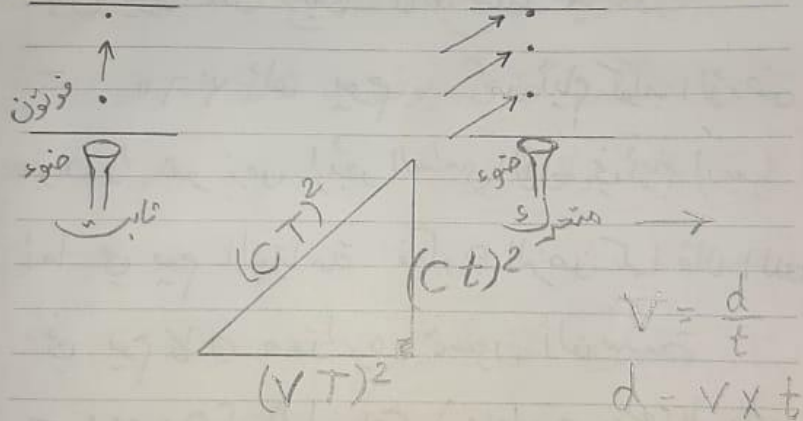 فوتون
ضوء
ثابت
ضوء
متحرك
(CT)²
(Ct)²
(VT)²
V = d/t
d = V x t